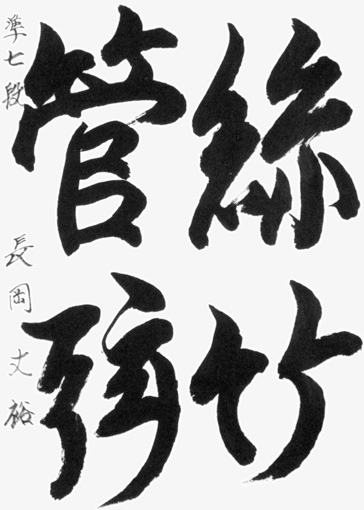 絲竹
管弦
準七段 長岡丈裕